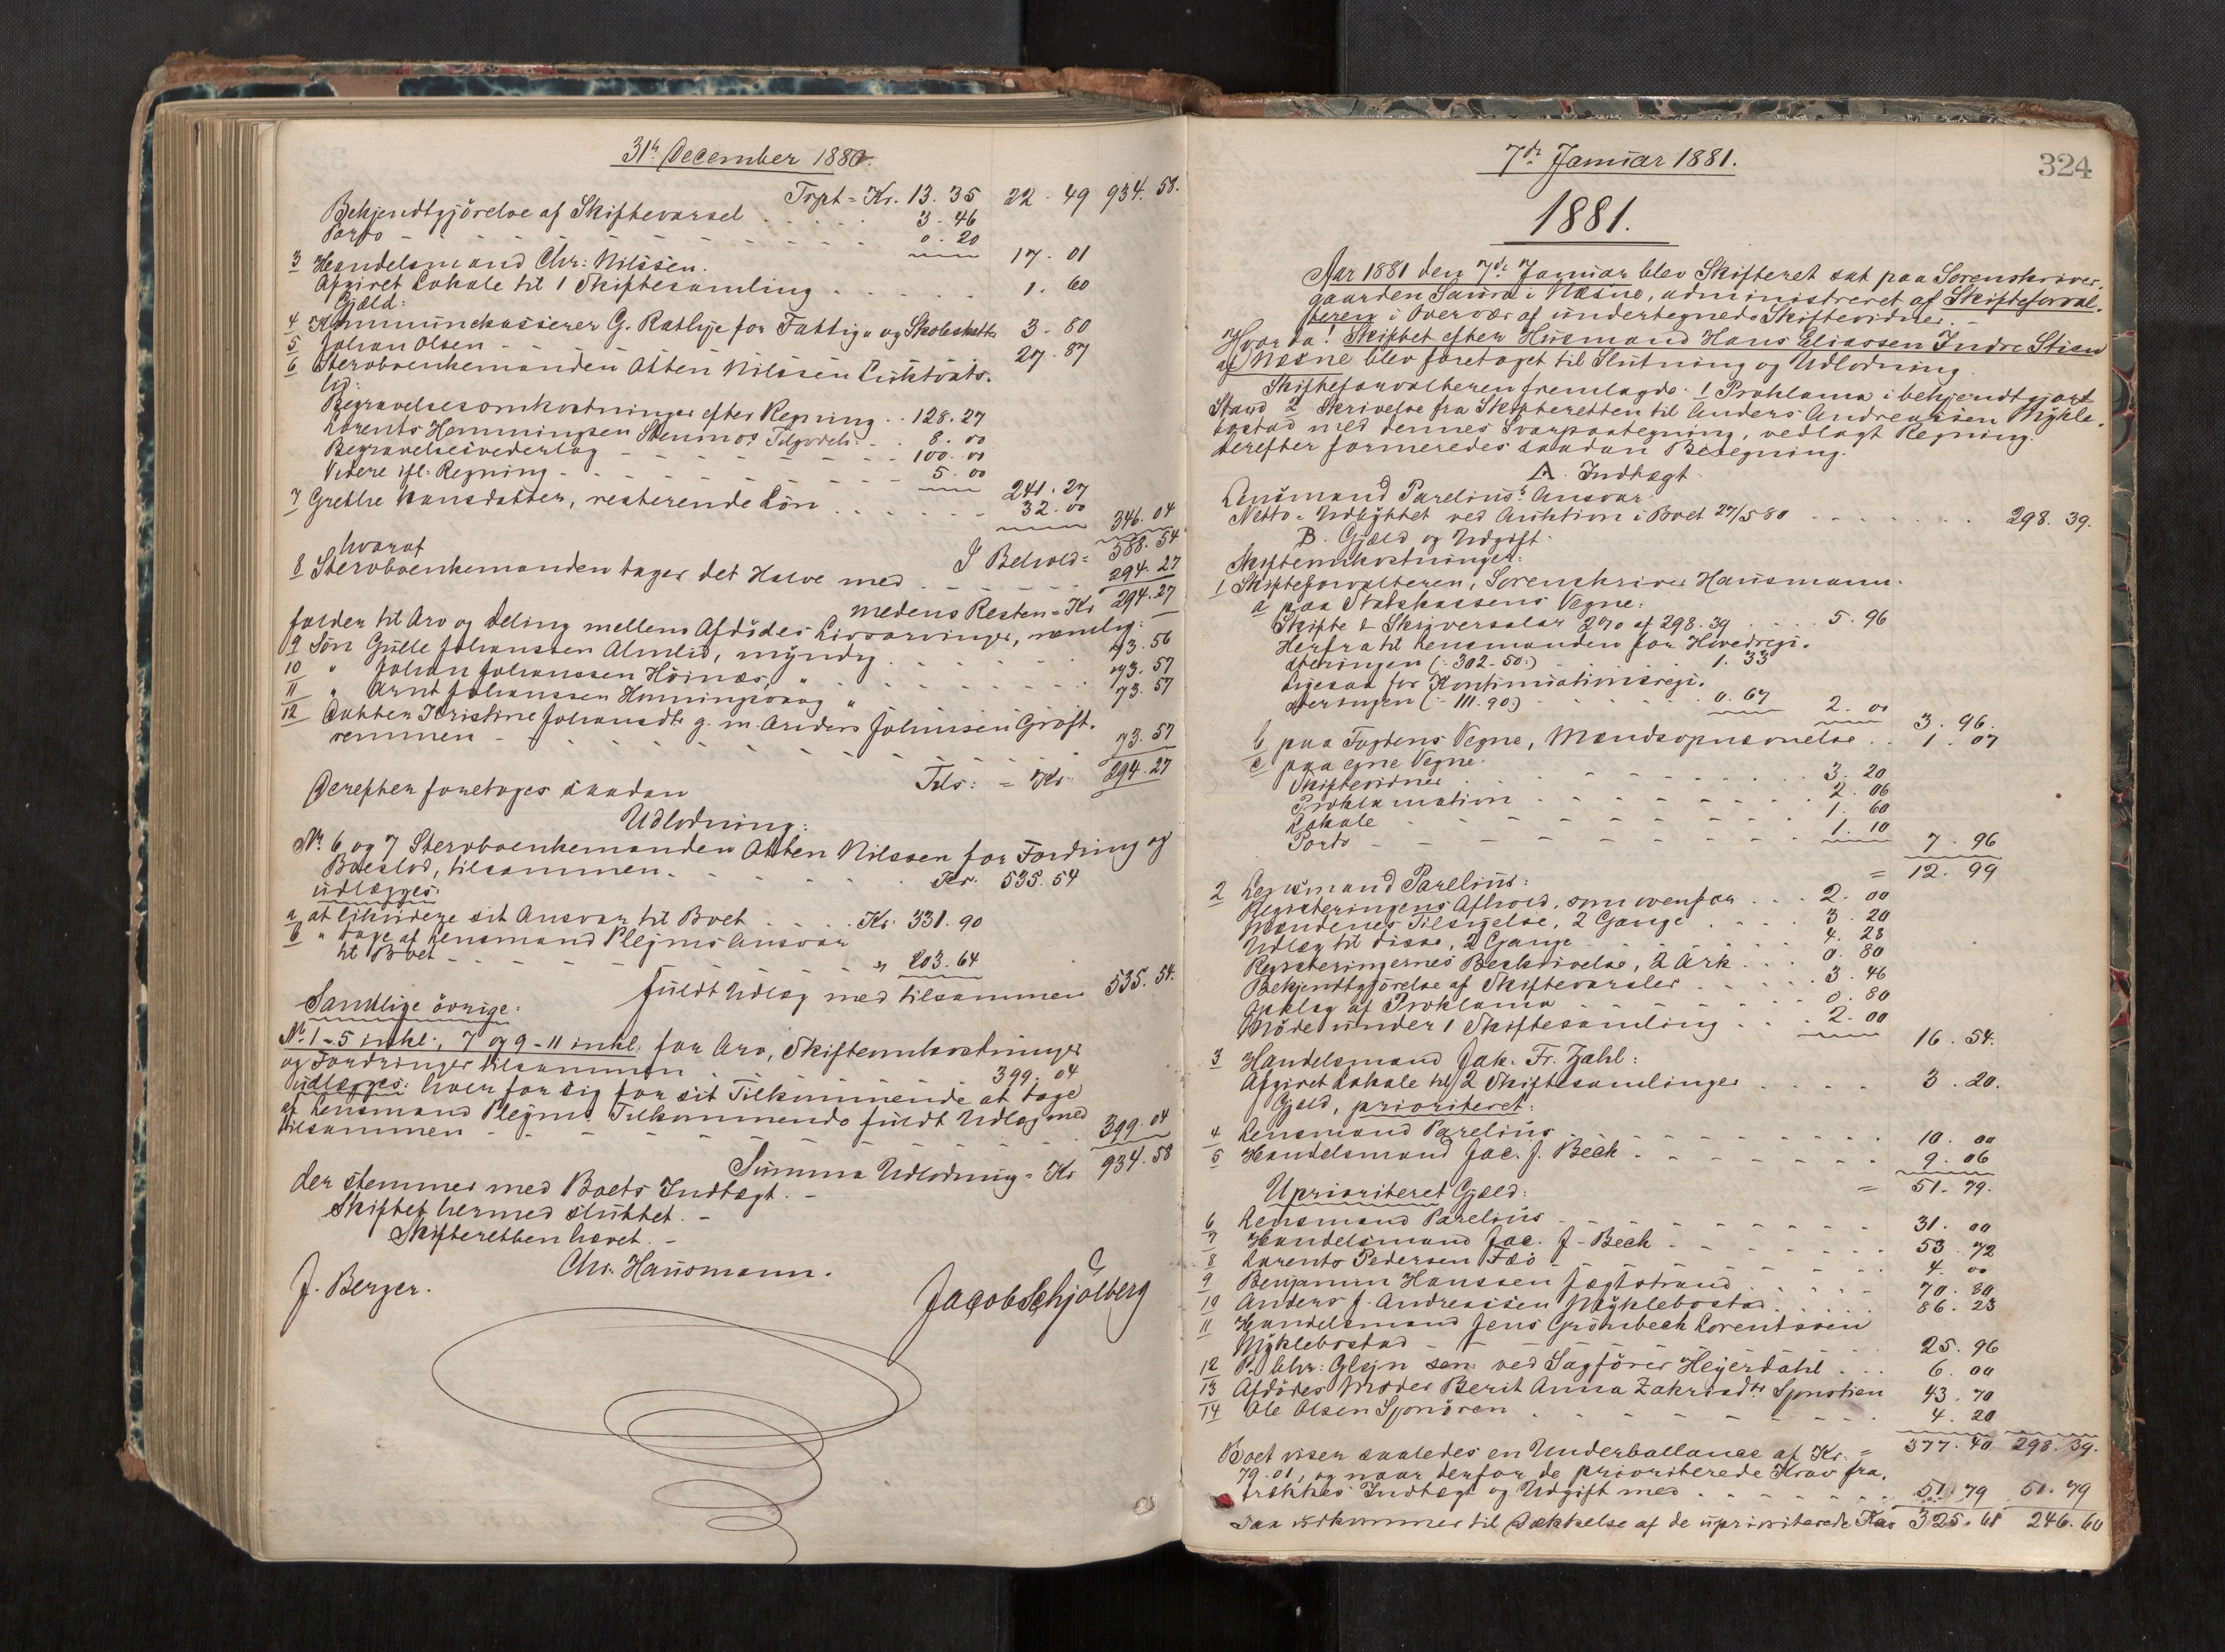 31te December 1880.
Trpt = Kr. 13. 35 22. 49 934. 58.
Bekjendtgjörelse af Skiftevarsel . . . . 3. 46
Porto - - - - - - - - 0. 20
17. 01
3 Handelsmand Chr: Nilssen.
Afgivet Lokale til 1 Skiftesamling . . . . . 1. 60
Gjæld:
4 Kommunekasserer G. Rathje for Fattig- og Skoleskatte 3. 80
5 Johan Olsen - - - - 27. 87
6 Stervboenkemanden Atten Nilssen Luktvats-
lid:
Begravelsesomkostninger efter Regning . . 128. 27
Lorents Hemmingsen Stenmos Tilgodeh: . . 8. 00
Begravelsesvederlag - - - - 100. 00
Videre ifl: Regning - - - - - 5. 00
241. 27
7 Grethe Hansdatter, resterende Lön . . . . . . 32. 00
346. 04
I Behold = 588. 54
hvoraf
8 Stervboenkemanden tager det Halve med . . . . 294. 27
medens Resten = Kr 294. 27
falder til Arv og Deling mellem Afdödes Livsarvinger, nemlig:
9 Sön Gulle Johanssen Almlid, myndig . . . . . . . 73. 56
10 " Johan Johanssen Höinæs, " . . . . . . . . 73. 57
11 " Arnt Johanssen Hemmingsvaag " . . . . . . . 73. 57
12 Datter Kristine Johansdtr g. m. Anders Johnssen Gröft-
remmen - - - - - - - - 73. 57
Tils: = Kr. 294. 27
Derefter foretoges saadan
Udlodning:
No 6 og 7 Stervboenkemanden Atten Nilssen for Fordring og
Boeslod, tilsammen . . . . . . Kr. 535. 54
udlægges:
a at likvidere sit Ansvar til Boet . . . . Kr: 331. 90
b " tage af Lensmand Plejms Ansvar
til Boet - - - - - - - " 203. 64
fuldt Udlæg med tilsammen 535. 54.
Samtlige övrige:
No 1-5 inkl:, 7 og 9-11 inkl. for Arv, Skifteomkostninger
og Fordringer tilsammen . . . . . . 399. 04
udlægges: hver for sig for sit Tilkommende at tage
af Lensmand Plejms Tilkommende fuldt Udlæg med
tilsammen - - - - - - - - 399. 04
Summa Udlodning = Kr 934. 58
der stemmer med Boets Indtægt. -
Skiftet hermed sluttet. -
Skifteretten hævet. -
Chr. Hausmann.
J. Berger.
Jacob Schjölberg
324
7de Januar 1881.
1881.
Aar 1881 den 7de Januar blev Skifteret sat paa Sorenskriver-
gaarden Saura i Næsne, administreret af Skifteforval-
teren i Overvær af undertegnede Skiftevidner. -
Hvorda! Skiftet efter Husmand Hans Eliassen Indre Stien
af Næsne blev foretaget til Slutning og Udlodning.
Skifteforvalteren fremlagde: 1 Proklama i bekjendtgjort
Stand 2 Skrivelse fra Skifteretten til Anders Andreassen Mykle-
bostad med dennes Svarpaategning, vedlagt Regning.
Derefter formeredes saadan Beregning.
A. Indtægt.
Lensmand Parelius's Ansvar.
Netto-Udbyttet ved Auktion i Boet 27/5 80 . . . . . . . 298. 39.
B. Gjæld og Udgift.
Skifteomkostninger:
1 Skifteforvalteren, Sorenskriver Hausmann.
a paa Statskassens Vegne:
Skifte & Skriversalær 2% af 298. 39 . . . . 5. 96
Herfra til Lensmanden for Hovedregi-
steringen (: 302-50:) - 1. 33
Ligesaa for Kontinuationsregi-
steringen (: 111. 90:) . . . . . 0. 67 2. 00
3. 96.
b paa Fogdens Vegne, Mændsopnævnelse . . 1. 07
c paa egne Vegne.
Skiftevidner . . . . . . . . 3. 20
Proklamation . . . . . . . 2. 06
Lokale . . . . . . . . 1. 60
Porto - - - - - - - 1. 10
7. 96
= 12. 99
2 Lensmand Parelius:
Registeringens Afhold, som ovenfor . . . 2. 00
Mændenes Tilsigelse, 2 Gange . . . . 3. 20
Udlæg til disse, 2 Gange - . . . . 4. 28
Registeringernes Beskrivelse, 2 Ark . . . 0. 80
Bekjendtgjörelse af Skiftevarsler . . . . 3. 46
Opslag af Proklama - - - - 0. 80
Möde under 1 Skiftesamling . . . 2. 00
16. 54.
3 Handelsmand Jak. Fr. Zahl:
Afgivet Lokale til 2 Skiftesamlinger . . . . 3. 20.
Gjæld, prioriteret:
4 Lensmand Parelius - - - - - - 10. 00
5 Handelsmand Jac. J. Bech - - - - - 9. 06
= 51. 79.
Uprioriteret Gjæld:
6 Lensmand Parelius - - - - - - 31. 00
7 Handelsmand Jac. J. Bech - - - - - 53. 72
8 Lorents Pedersen Fæö - - - - - 4. 00
9 Benjamin Hanssen Jægtstrand . . . . . 70. 80
10 Anders J. Andreassen Myklebostad . . . . . 86. 23
11 Handelsmand Jens Grönbech Lorentssen
Myklebostad - - - - - - 25. 96
12 P. Chr: Glejn sen: ved Sagförer Heyerdahl . . . 6. 00
13 Afdödes Moder Berit Anna Zakrisdtr Sjonstien 43. 70
14 Ole Olsen Sjonören . . . . . . . . 4. 20
Boet viser saaledes en Underballance af Kr. = 377. 40 298. 39.
79. 01, og naar derfor de prioriterede Krav fra-
trækkes Indtægt og Udgift med . . . . . . 51. 79 51. 79
saa udkommer til Dækkelse af de uprioriterede Krav 325. 61 246. 60